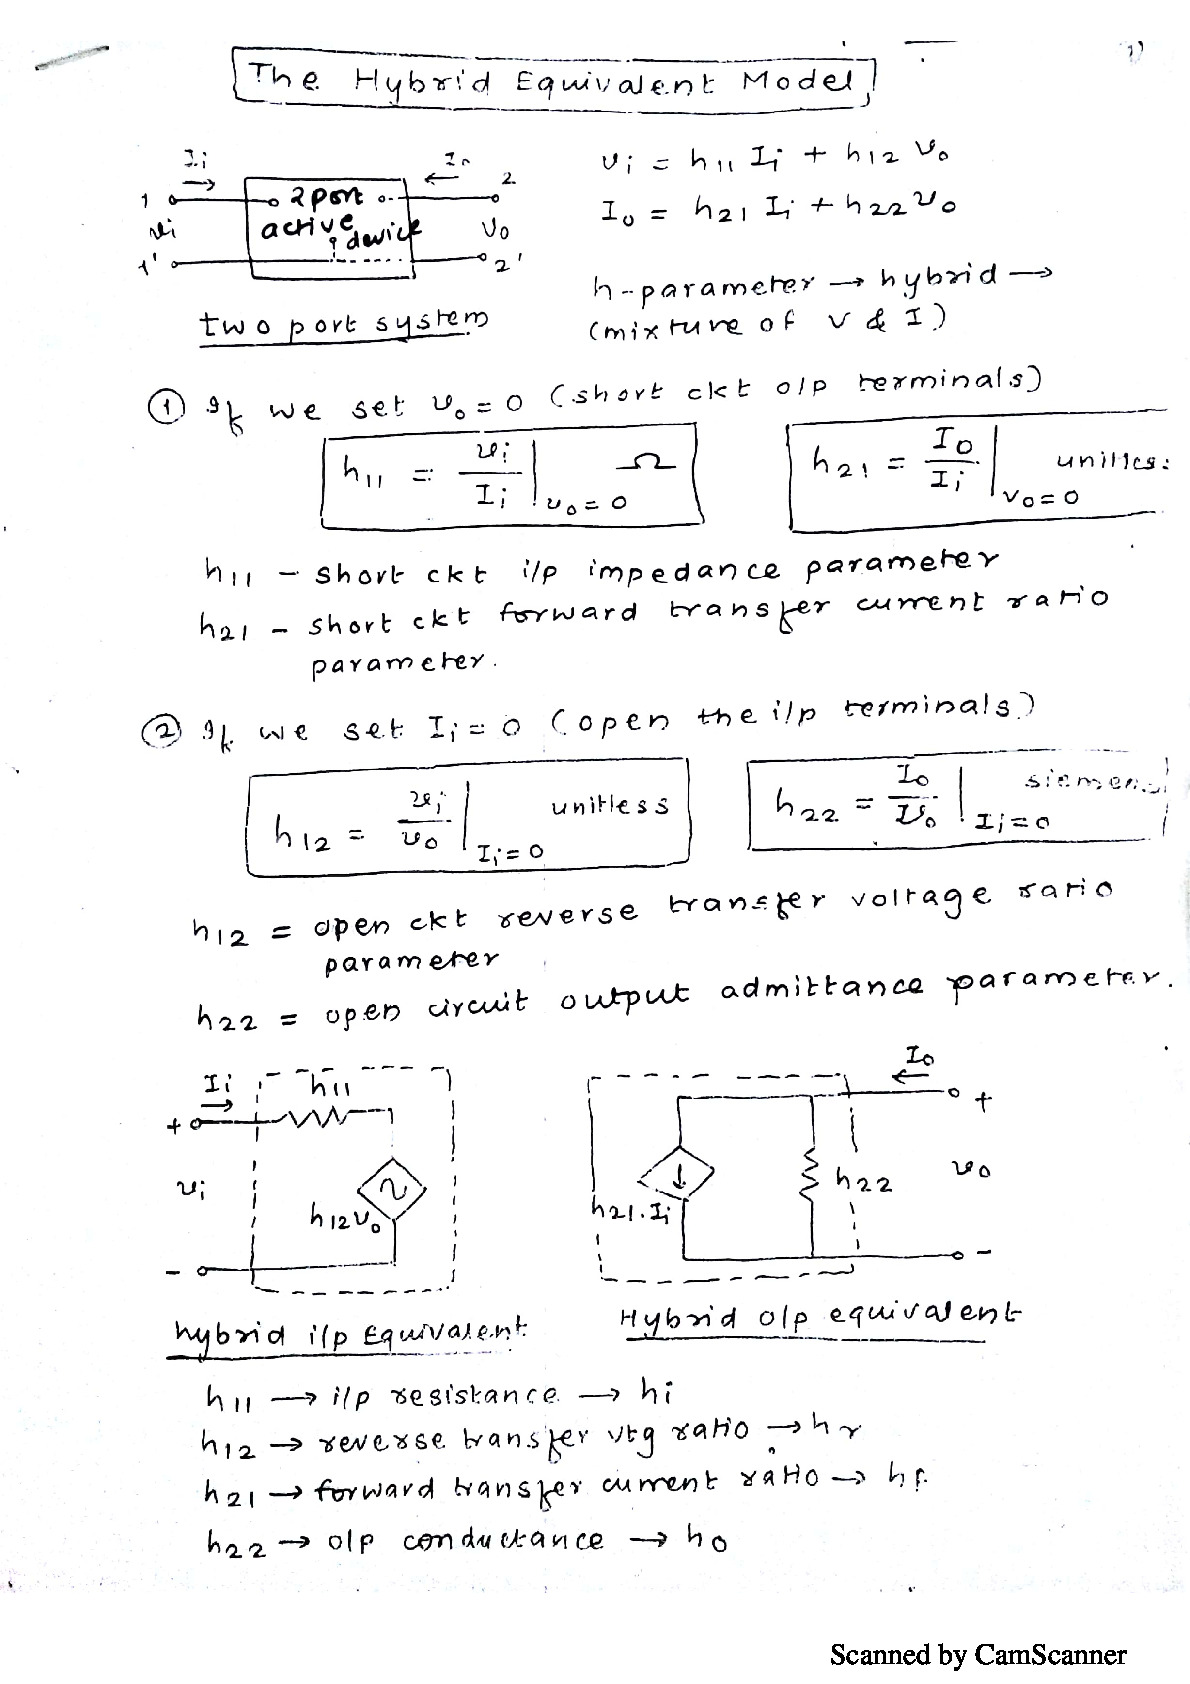 The Hybrid Equivalent Model
Ii Io
1 2 port 2
vi active device Vo
1' 2'
two port system
vi = h11 Ii + h12 Vo
Io = h21 Ii + h22 Vo
h-parameter → hybrid →
(mixture of V & I)
① If we set Vo = 0 (short ckt o/p terminals)
h11 = vi/Ii | Vo = 0 Ω
h21 = Io/Ii | Vo = 0 unitless
h11 - short ckt i/p impedance parameter
h21 - short ckt forward transfer current ratio
parameter.
② If we set Ii = 0 (open the i/p terminals)
h12 = vi/vo | Ii = 0 unitless
h22 = Io/Vo | Ii = 0 siemens
h12 = open ckt reverse transfer voltage ratio
parameter
h22 = open circuit output admittance parameter.
Ii h11
+
vi
h12 Vo
-
Io
+
h21.Ii h22 vo
-
hybrid i/p Equivalent
Hybrid o/p equivalent
h11 → i/p resistance → hi
h12 → reverse transfer vtg ratio → hr
h21 → forward transfer current ratio → hf
h22 → o/p conductance → ho
Scanned by CamScanner